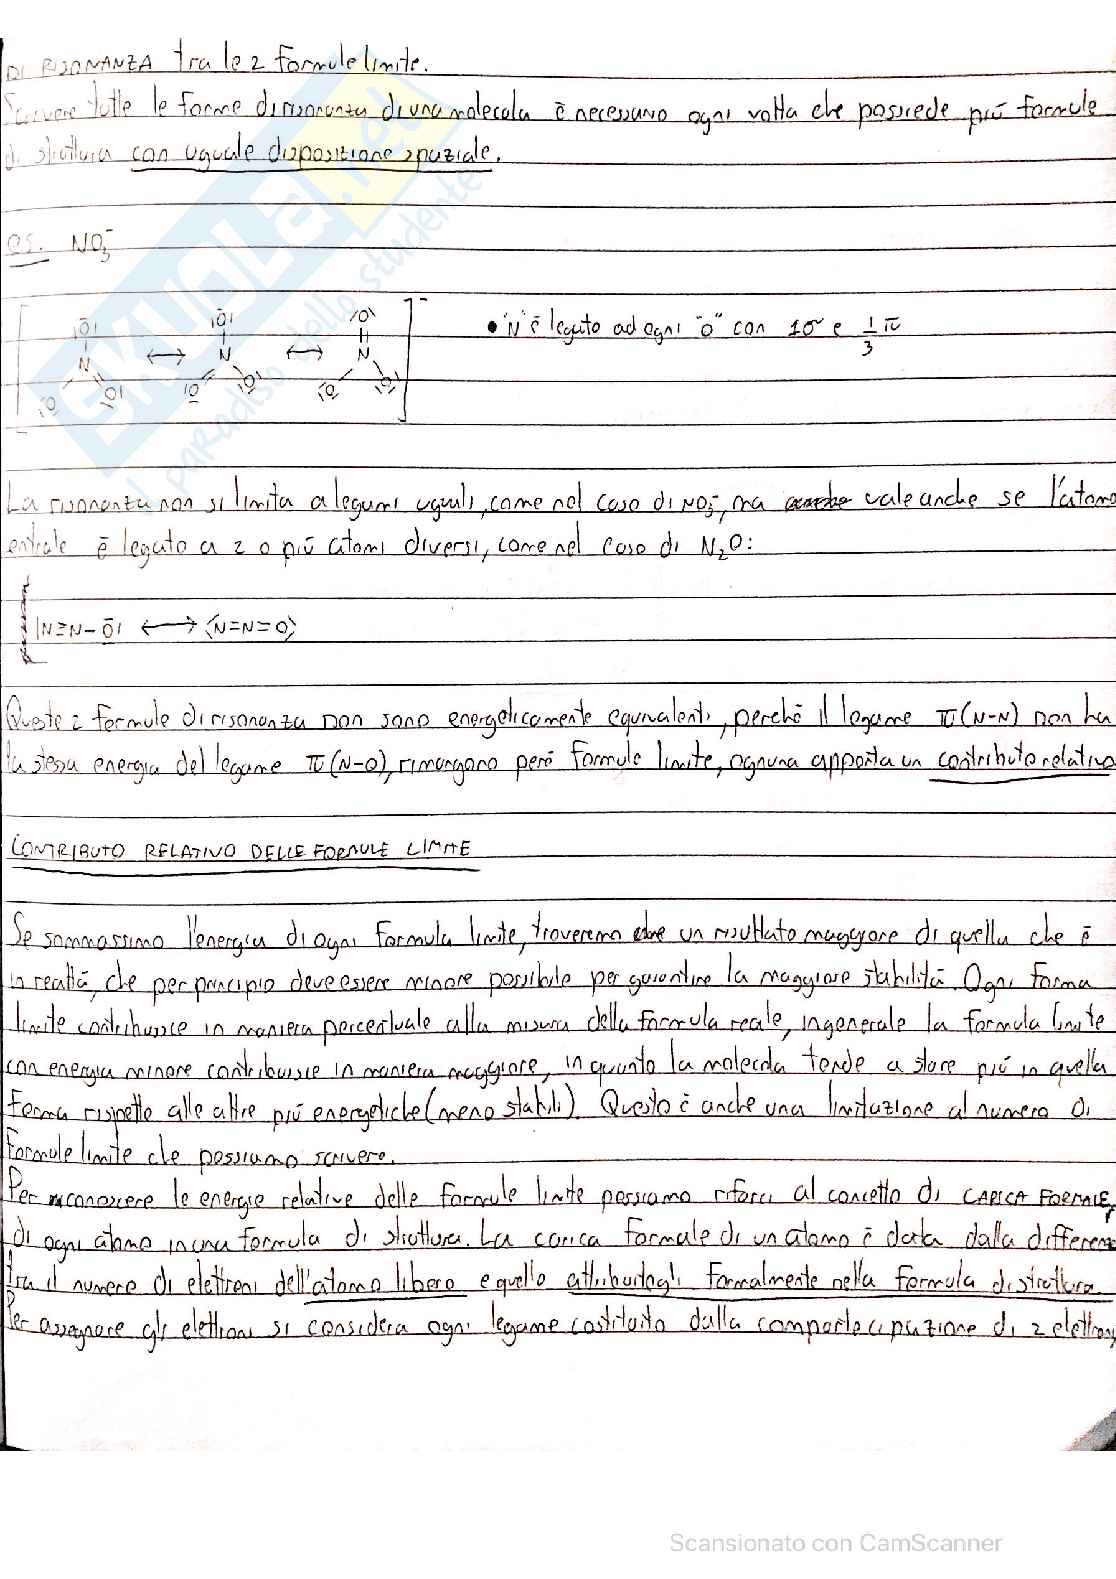 DI RISONANZA tra le 2 formule limite.
Scrivere tutte le forme di risonanza di una molecola è necessario ogni volta che possiede più formule
di struttura con uguale disposizione spaziale.
es. NO₃⁻
• "N" è legato ad ogni "O" con 1σ e 1/3 π
La risonanza non si limita a legami uguali, come nel caso di NO₃⁻, ma vale anche se l'atomo
entrale è legato a 2 o più atomi diversi, come nel caso di N₂O:
|N≡N-O̅| ⟷ ⟨N=N=O⟩
Queste 2 formule di risonanza non sono energeticamente equivalenti, perché il legame π(N-N) non ha
la stessa energia del legame π(N-O), rimangono però formule limite, ognuna apporta un contributo relativo
CONTRIBUTO RELATIVO DELLE FORMULE LIMITE
Se sommassimo l'energia di ogni formula limite, troveremo un risultato maggiore di quella che è
in realtà, che per principio deve essere minore possibile per garantire la maggiore stabilità. Ogni forma
limite contribuisce in maniera percentuale alla misura della formula reale, in generale la formula limite
con energia minore contribuisce in maniera maggiore, in quanto la molecola tende a stare più in quella
forma rispetto alle altre più energetiche (meno stabili). Questo è anche una limitazione al numero di
formule limite che possiamo scrivere.
Per riconoscere le energie relative delle formule limite possiamo rifarci al concetto di CARICA FORMALE,
di ogni atomo in una formula di struttura. La carica formale di un atomo è data dalla differenz
tra il numero di elettroni dell'atomo libero e quello attribuitogli formalmente nella formula di struttura.
Per assegnare gli elettroni si considera ogni legame costituito dalla compartecipazione di 2 elettroni,
SKUOLA.net
il paradiso dello studente
Scansionato con CamScanner